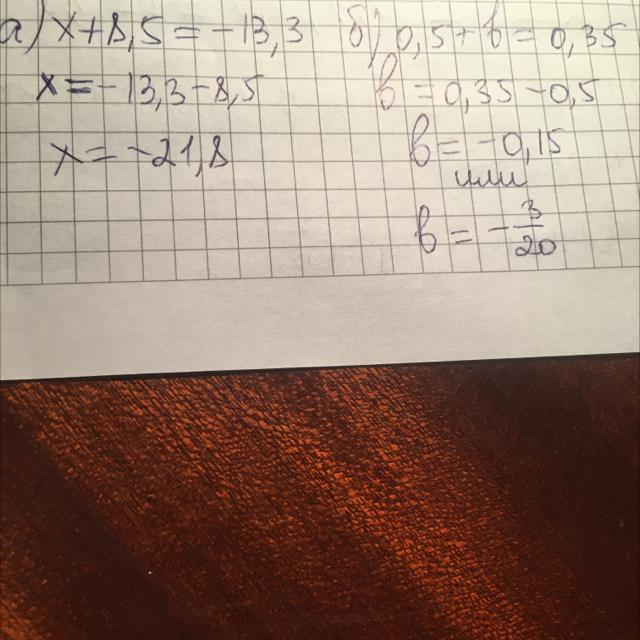 а) x+8,5=-13,3
x=-13,3-8,5
x=-21,8
б) 0,5+b=0,35
b=0,35-0,5
b=-0,15
или
b=-3/20